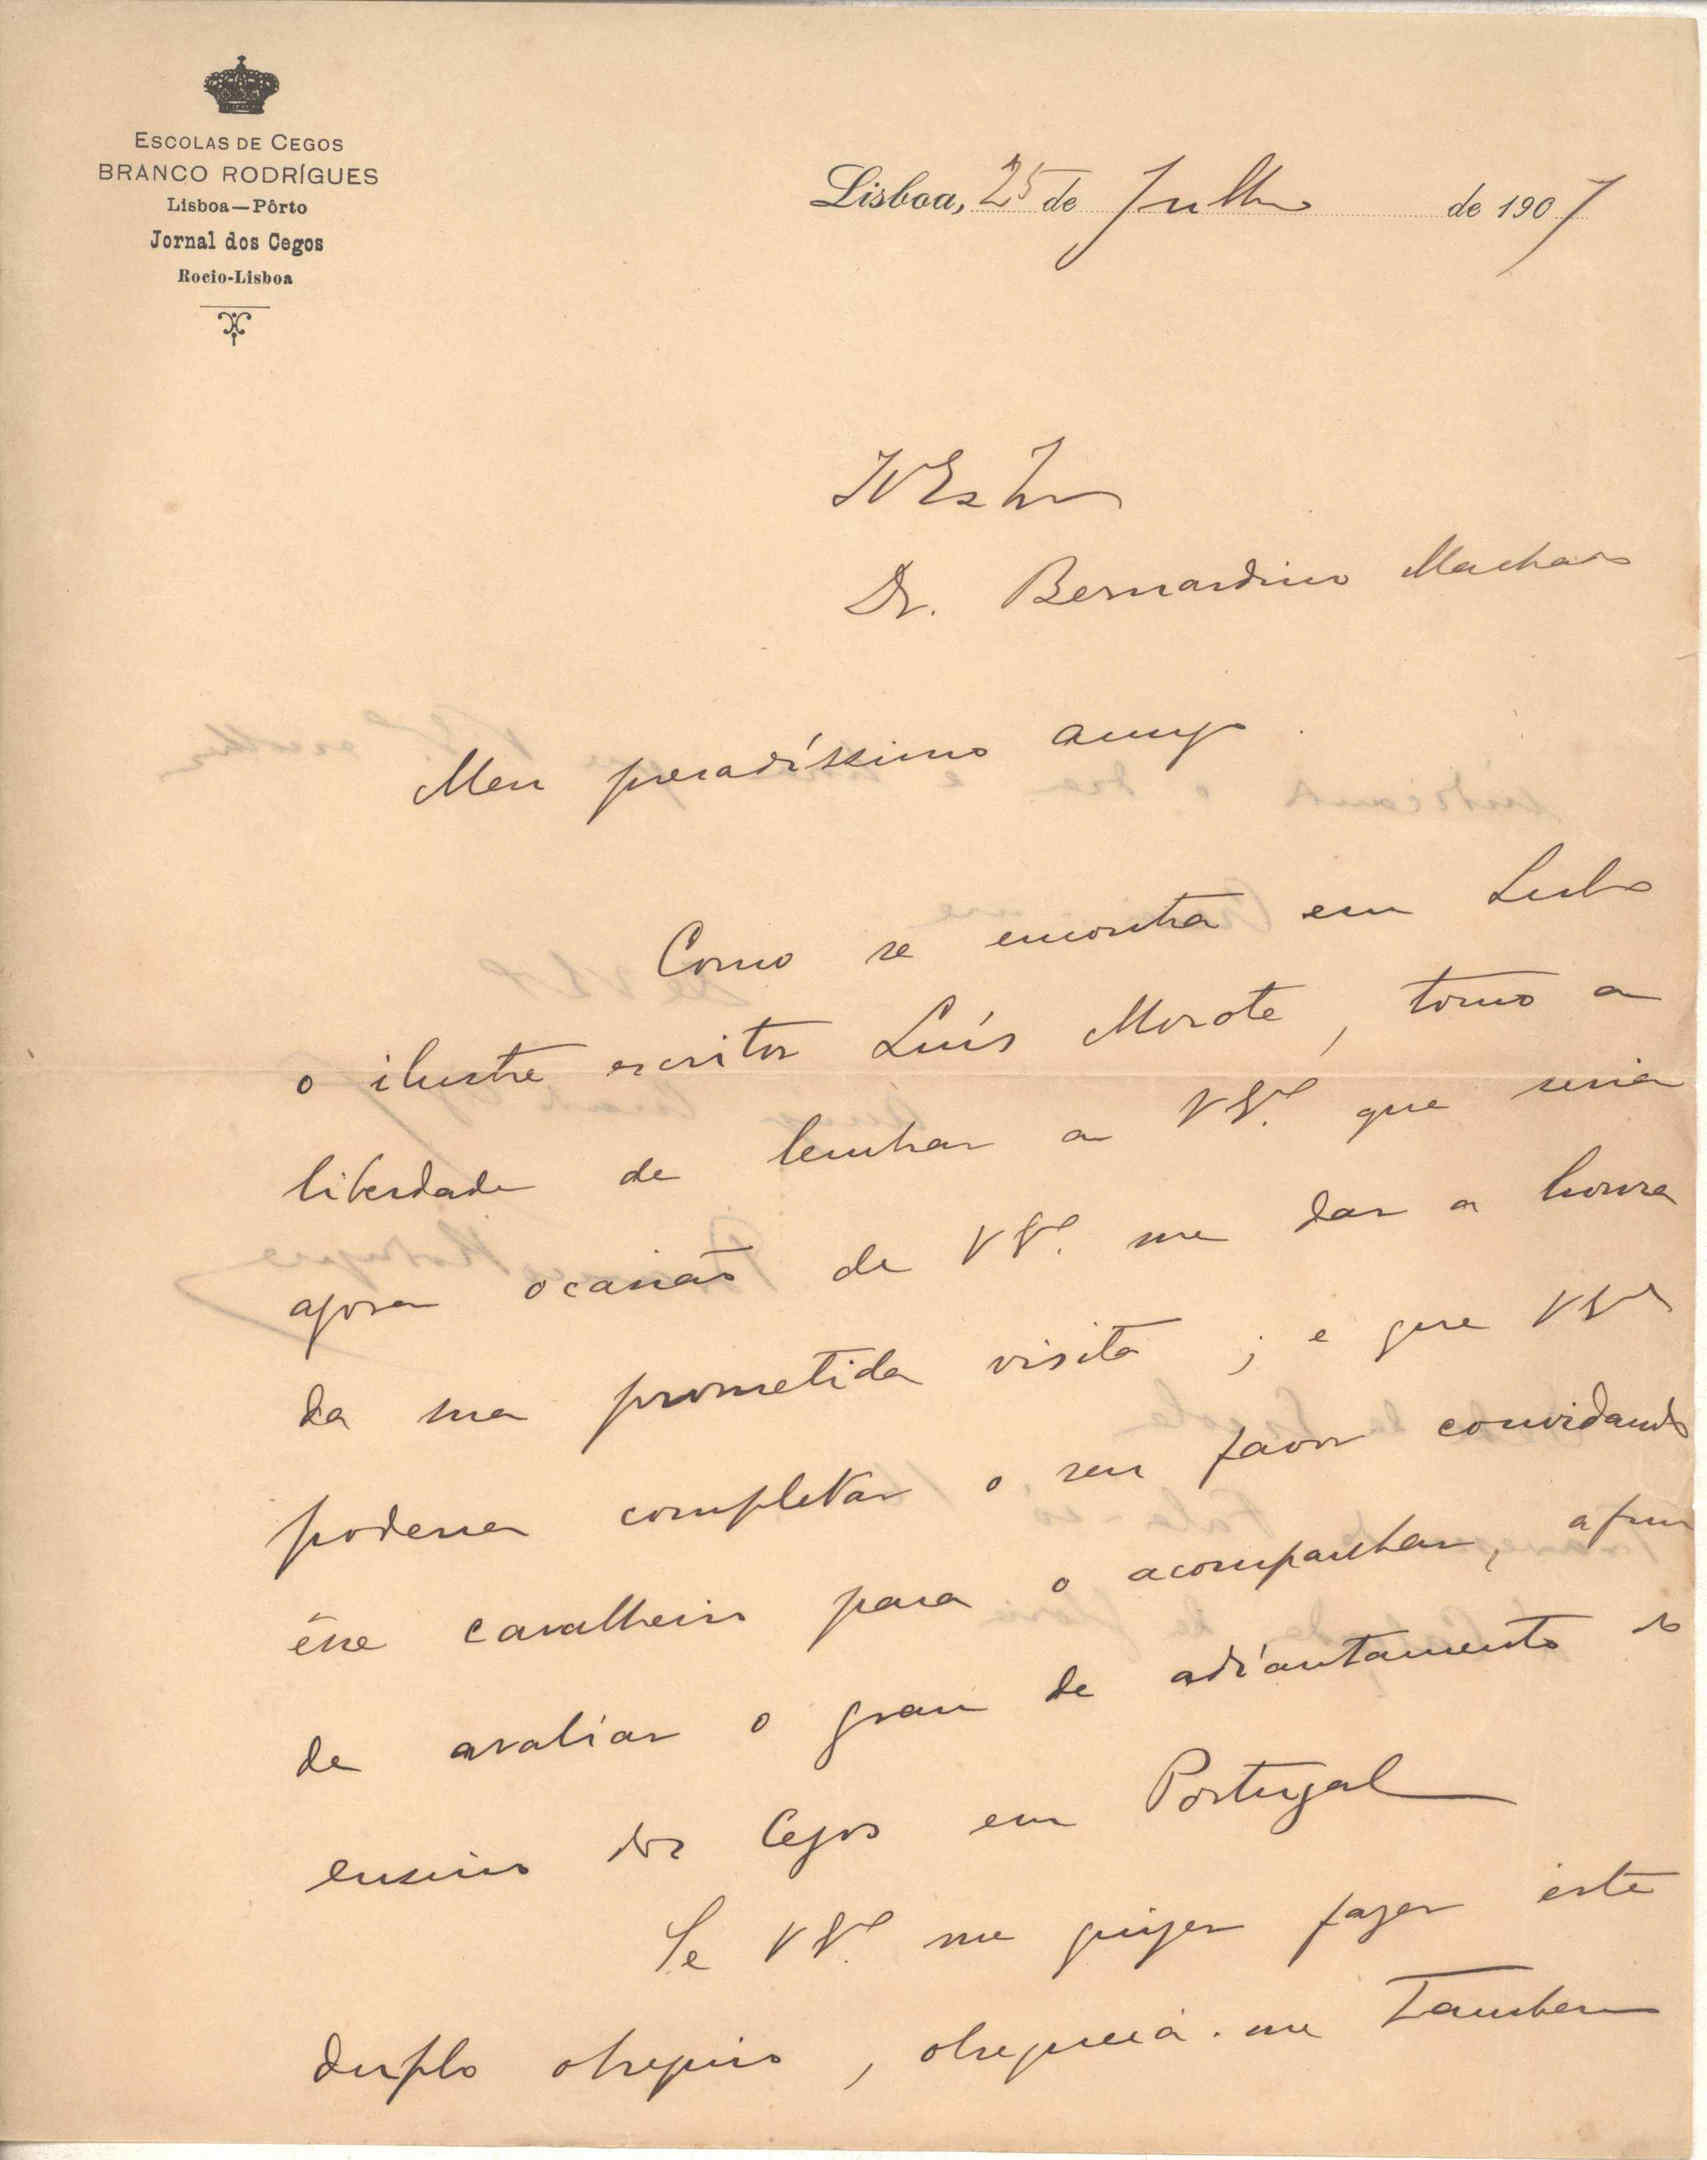 ESCOLAS DE CEGOS
BRANCO RODRÍGUES
Lisboa—Pôrto
Jornal dos Cegos
Rocio-Lisboa
Lisboa, 25 de Julho de 1907
Dr. Bernardino Machado
Meu presadíssimo amigo
Como se encontra em Lisboa
o ilustre escritor Luís Morote, tomo a
liberdade de lembrar a V Ex.ª que seria
agora ocasião de V Ex.ª me dar a honra
da sua prometida visita; e que V Ex.ª
poderia completar o seu favor convidando
êsse cavalheiro para o acompanhar, afim
de avaliar o grau de adiantamento do
ensino dos Cegos em Portugal
Se V Ex.ª me quizer fazer êste
duplo obsequio, obsequeia-me Tambem